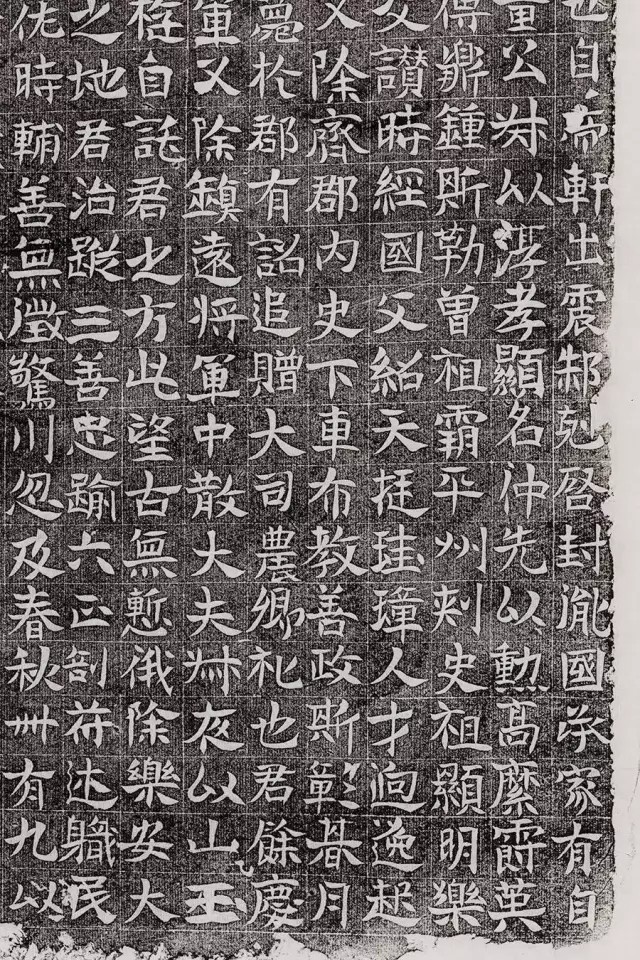 也自帝軒出震郝剋啓封胤國承家有自
量公叔以淳孝顯名仲先以勳高縻爵英
傳鼎鍾斯勒曾祖霸平州刾史祖顯明樂
讃時經國父紹天挺珪璋人才逈逸起
又除齊郡內史下車布教善政斯彰朞月
薨於郡有詔追贈大司農卿礼也君餘慶
軍又除鎮遠將軍中散大夫叔夜以山王
自託君之方此望古無慙俄除樂安大
之地君治蹤三善忠踰六正剖苻述職民
佐時輔善無徵驚川忽及春秋卌有九以